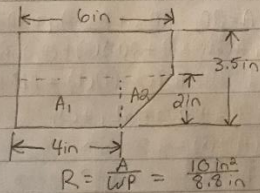 6in
3.5in
A1 A2 2in
4in
R = A/WP = 10in²/8.8in